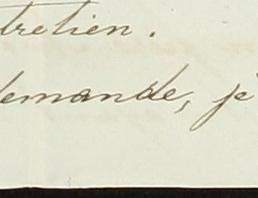 tretien.
demande, je